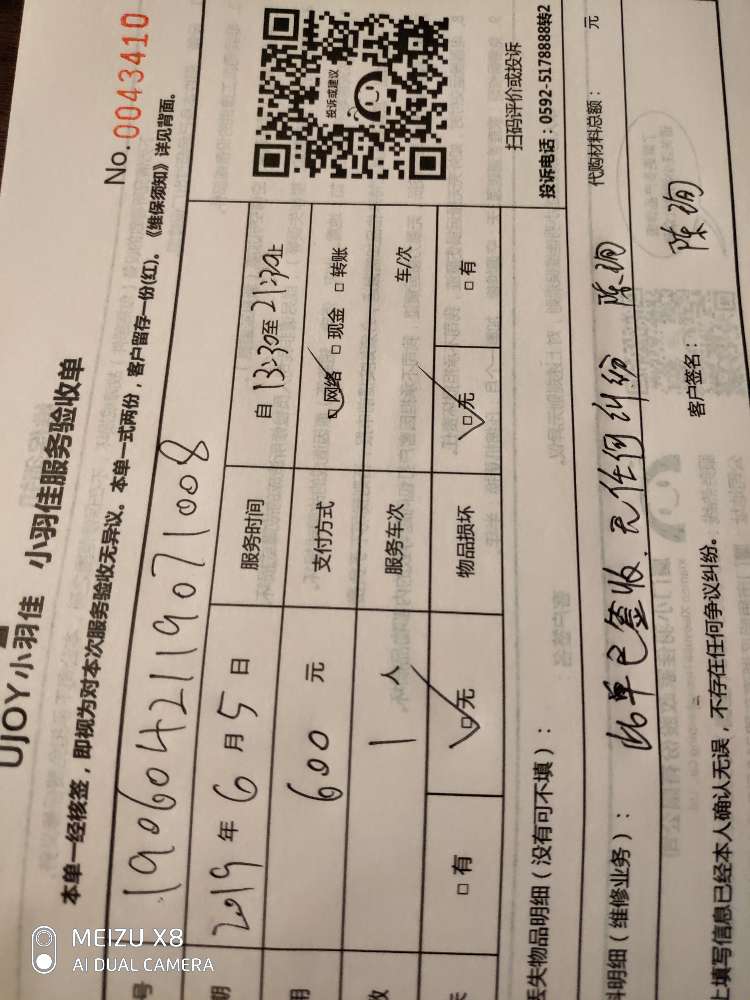 UJOY小羽佳 小羽佳服务验收单
No.0043410
本单一经核签，即视为对本次服务验收无异议。本单一式两份，客户留存一份(红)。《维保须知》详见背面。
号 190604211907 1008
期 2019 年 6 月 5 日 服务时间 自 13:30 至 21:30 止
用 600 元 支付方式 □网络 □ 现金 □ 转账
数 1 人 服务车次 车/次
失 □ 有 □无 物品损坏 □无 □ 有
投诉或建议
扫码评价或投诉
投诉电话：0592-5178888转2
丢失物品明细（没有可不填）：
料明细（维修业务）： 此单已签收.无任何纠纷 陈询 代购材料总额： 元
上填写信息已经本人确认无误，不存在任何争议纠纷。 客户签名： 陈询
MEIZU X8
AI DUAL CAMERA